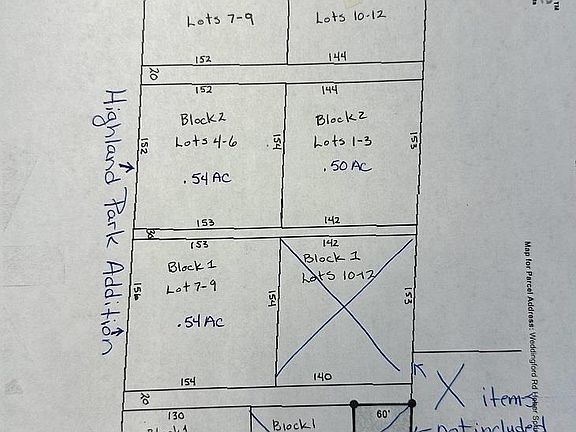 Lots 7-9
Lots 10-12
152
144
20
152
144
Block 2
Lots 4-6
.54 AC
152
154
Block 2
Lots 1-3
.50 AC
153
153
142
30
153
142
Block 1
Lot 7-9
.54 AC
156
154
Block 1
Lots 10-12
153
154
140
20
130
Block 1
60'
Highland Park Addition
X items
not included
Map for Parcel Address: Weddingford Rd
TM